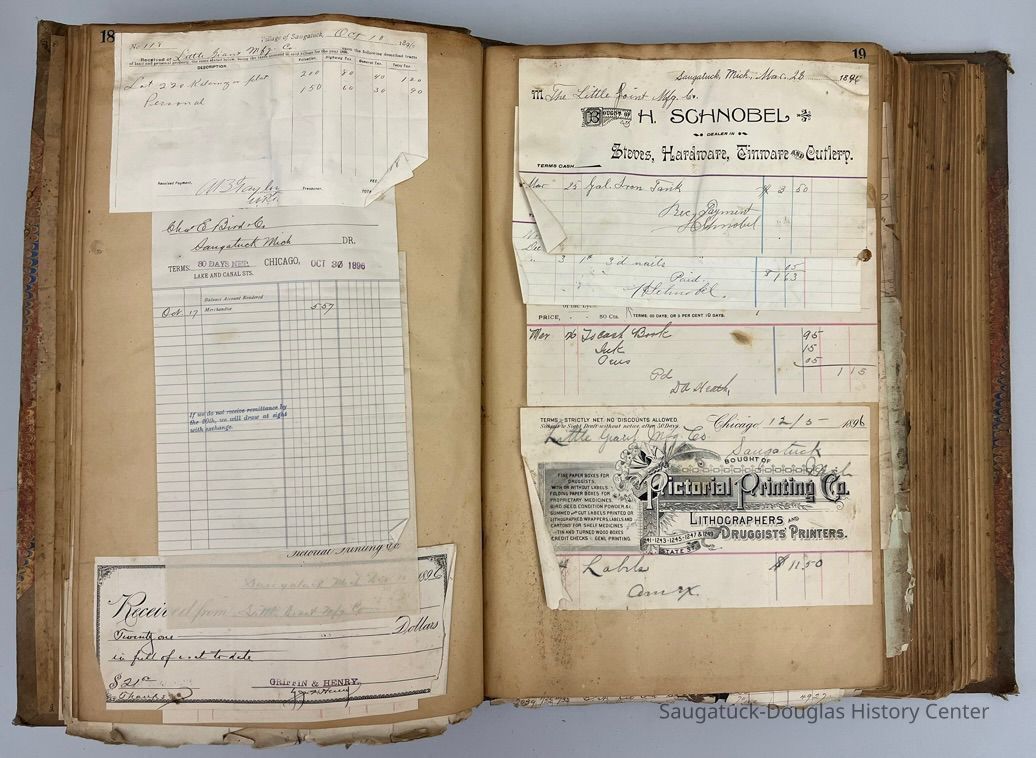 18
No 118
Village of Saugatuck, Oct 10 1896
Received of Little Giant Mfg. Co
DESCRIPTION
Lot 220 Kalamazoo plat 200 80 40 1 20
Personal 150 60 30 90
Received Payment,
Treasurer.
Chas E Bird & Co
Saugatuck Mich
DR.
TERMS 30 DAYS NET. CHICAGO, OCT 30 1896
LAKE AND CANAL STS.
Balance Account Rendered
Oct. 17 Merchandise 5 57
If we do not receive remittance by
the 10th, we will draw at sight
with exchange.
Pictorial Printing Co
Saugatuck Mich
1896
Received from Little Giant Mfg Co
Twenty one Dollars
in full of to date
$ 21
GRIFFIN & HENRY.
Thanks
19
Saugatuck, Mich., Mar. 28 1896
M The Little Giant Mfg. Co.
BOUGHT OF H. SCHNOBEL
DEALER IN
Stoves, Hardware, Tinware AND Cutlery.
TERMS CASH
Mar 25 Gal. Iron Tank 3 50
Rec. Payment
H Schnobel
3 1 # 3d nails 05
Paid 1 63
H Schnobel.
PRICE, 50 Cts. TERMS: 60 DAYS, OR 5 PER CENT 10 DAYS.
Mar 26 To Cash Book 95
Ink 15
Pens 05
1 15
Pd
DA Heath,
TERMS STRICTLY NET. NO DISCOUNTS ALLOWED.
Subject to Sight Draft without notice after 30 Days.
Chicago 12/5 1896
Little Giant Mfg Co
Saugatuck
Mich
BOUGHT OF
Pictorial Printing Co.
LITHOGRAPHERS AND
DRUGGISTS' PRINTERS.
FINE PAPER BOXES FOR
DRUGGISTS,
WITH OR WITHOUT LABELS.
FOLDING PAPER BOXES FOR
PROPRIETARY MEDICINES,
BIRD SEED CONDITION POWDER &c
GUMMED AND CUT LABELS PRINTED OR
LITHOGRAPHED WRAPPERS, LABELS AND
CARTONS FOR SHELF MEDICINES
TIN AND TURNED WOOD BOXES
CREDIT CHECKS - GENL PRINTING
1243-1245-1247 & 1249
STATE ST
Labels $ 11.50
Saugatuck-Douglas History Center